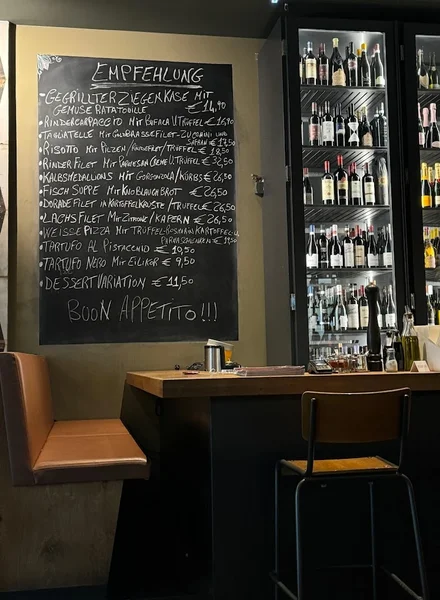 EMPFEHLUNG
• GEGRILLTER ZIEGENKÄSE MIT
GEMÜSE RATATOUILLE € 14,90
• RINDERCARPACCIO MIT BUFALA U. TRÜFFEL € 16,90
• TAGLIATELLE MIT
FILET-ZUCCHINI UND
SAFRAN € 17,50
• RISOTTO MIT PILZEN/RINDERFILET/TRÜFFEL € 19,50
• RINDER FILET MIT PARMESAN CREME U. TRÜFFEL € 32,50
• KALBSMEDALLIONS MIT GORGONZOLA/KÜRBIS € 26,50
• FISCH SUPPE MIT KNOBLAUCH BROT € 26,50
• DORADE FILET IN KARTOFFELKRUSTE/TRUFFEL € 26,50
• LACHS FILET MIT ZITRONE/KAPERN € 26,50
• WEISSE PIZZA MIT TRÜFFEL-ROSMARIN KARTOFFEL U.
€ 19,50
• TARTUFO AL PISTACCHIO € 10,50
• TARTUFO NERO MIT EILIKÖR € 9,50
• DESSERTVARIATION € 11,50
BUON APPETITO!!!